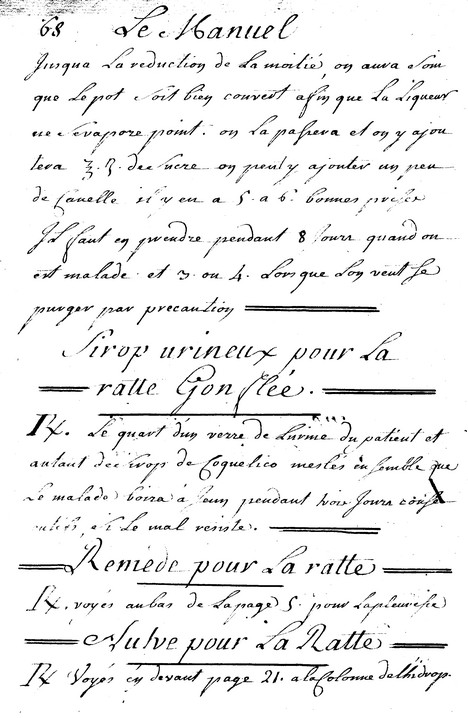 68 Le Manuel
Jusqua La reduction de La moitié, on aura soin
que Le pot soit bien couvert afin que La Liqueur
ne sevapore point. on La passera et on y ajou
tera ℥. 3. de sucre on peut y ajouter un peu
de Canelle il y en a 5. a 6. bonnes prises
Il faut en prendre pendant 8 Jours quand on
est malade et 3. ou 4. Lorsque Lon veut se
purger par precaution
Sirop urineux pour La
ratte Gonflée.
℞. Le quart dun verre de Lurine du patient et
autant de sirop de Coquelico meslés ensemble que
Le malade boira à Jeun pendant trois Jours conse
cutifs, si Le mal resiste.
Remede pour La ratte
℞. voyés au bas de La page 5. pour La pleuresie
Vulve pour La Ratte
℞ Voyés cy devant page 21. a la Colonne de Lhidrop.